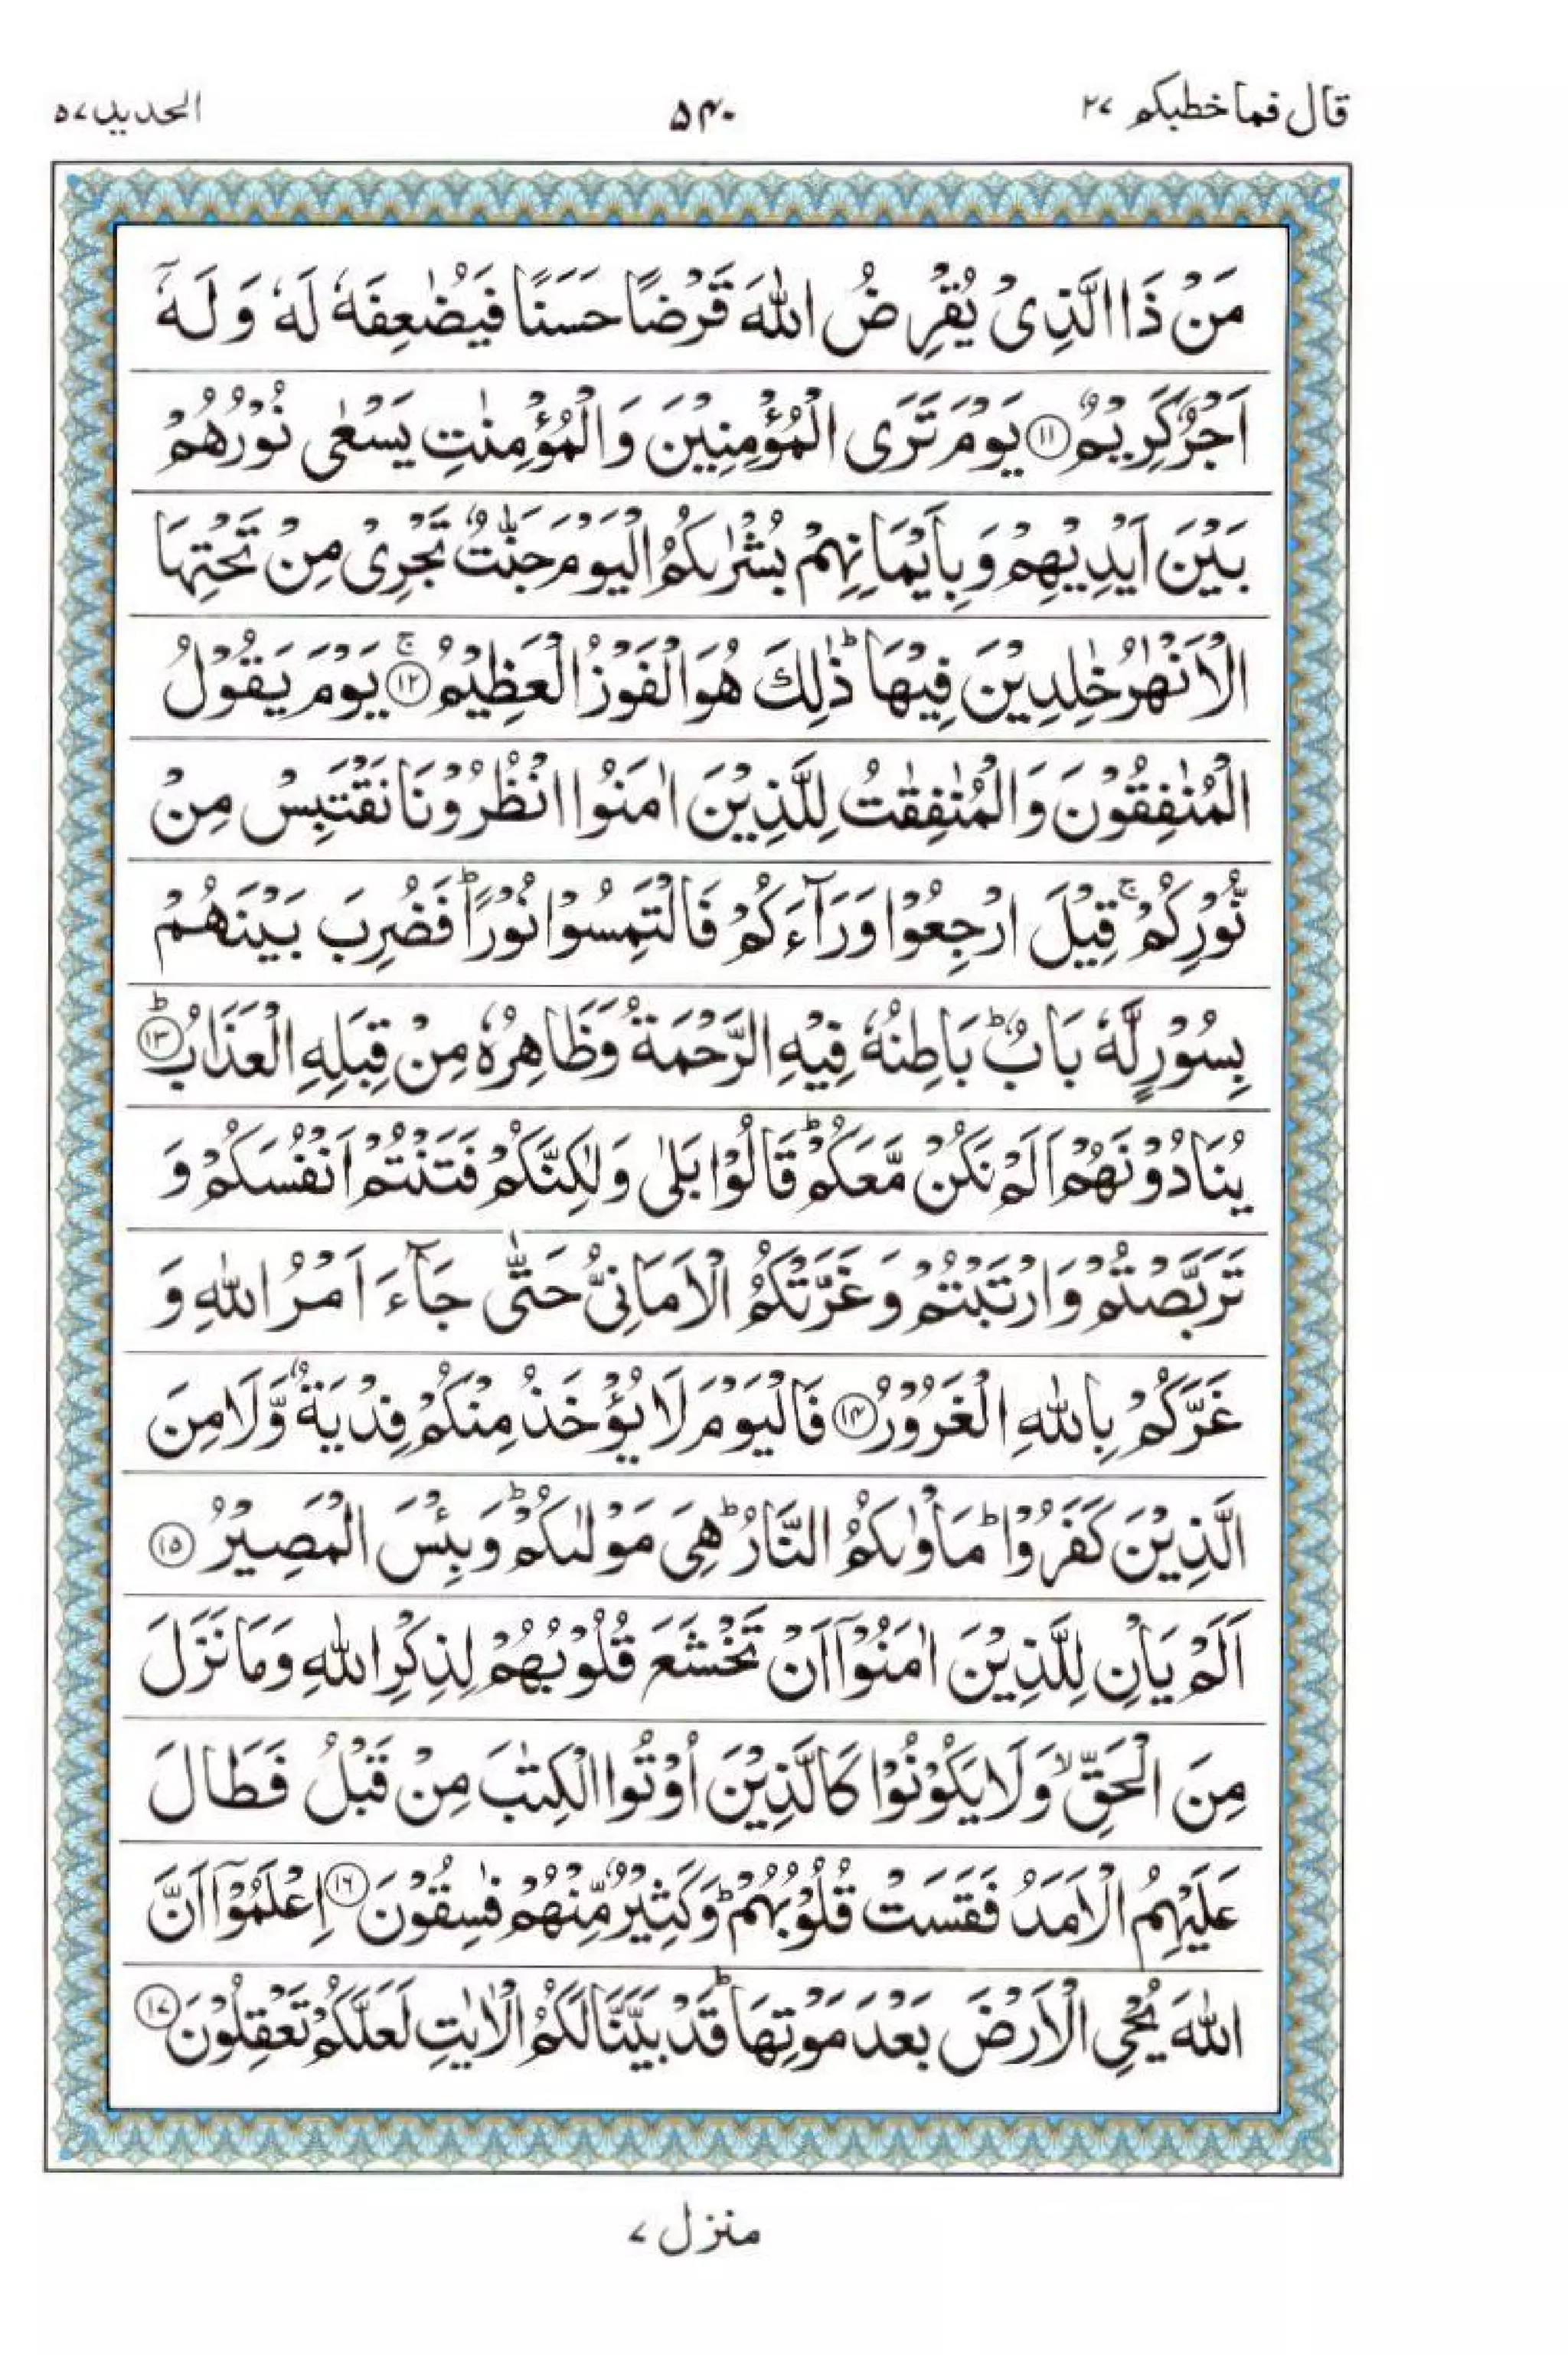 قال فما خطبکم ۲۷
۵۴۰
الحدید ۵۷
مَنْ ذَا الَّذِیْ یُقْرِضُ اللّٰهَ قَرْضًا حَسَنًا فَیُضٰعِفَهٗ لَهٗ وَ لَهٗۤ
اَجْرٌ كَرِیْمٌ ۝۱۱ یَوْمَ تَرَی الْمُؤْمِنِیْنَ وَ الْمُؤْمِنٰتِ یَسْعٰی نُوْرُهُمْ
بَیْنَ اَیْدِیْهِمْ وَ بِاَیْمَانِهِمْ بُشْرٰىكُمُ الْیَوْمَ جَنّٰتٌ تَجْرِیْ مِنْ تَحْتِهَا
الْاَنْهٰرُ خٰلِدِیْنَ فِیْهَا ؕ ذٰلِكَ هُوَ الْفَوْزُ الْعَظِیْمُ ۝۱۲ۚ یَوْمَ یَقُوْلُ
الْمُنٰفِقُوْنَ وَ الْمُنٰفِقٰتُ لِلَّذِیْنَ اٰمَنُوا انْظُرُوْنَا نَقْتَبِسْ مِنْ
نُّوْرِكُمْ ۚ قِیْلَ ارْجِعُوْا وَرَآءَكُمْ فَالْتَمِسُوْا نُوْرًا ؕ فَضُرِبَ بَیْنَهُمْ
بِسُوْرٍ لَّهٗ بَابٌ ؕ بَاطِنُهٗ فِیْهِ الرَّحْمَةُ وَ ظَاهِرُهٗ مِنْ قِبَلِهِ الْعَذَابُ ۝۱۳ؕ
یُنَادُوْنَهُمْ اَلَمْ نَكُنْ مَّعَكُمْ ؕ قَالُوْا بَلٰی وَ لٰكِنَّكُمْ فَتَنْتُمْ اَنْفُسَكُمْ وَ
تَرَبَّصْتُمْ وَ ارْتَبْتُمْ وَ غَرَّتْكُمُ الْاَمَانِیُّ حَتّٰی جَآءَ اَمْرُ اللّٰهِ وَ
غَرَّكُمْ بِاللّٰهِ الْغَرُوْرُ ۝۱۴ فَالْیَوْمَ لَا یُؤْخَذُ مِنْكُمْ فِدْیَةٌ وَّ لَا مِنَ
الَّذِیْنَ كَفَرُوْا ؕ مَاْوٰىكُمُ النَّارُ ؕ هِیَ مَوْلٰىكُمْ ؕ وَ بِئْسَ الْمَصِیْرُ ۝۱۵
اَلَمْ یَاْنِ لِلَّذِیْنَ اٰمَنُوْۤا اَنْ تَخْشَعَ قُلُوْبُهُمْ لِذِكْرِ اللّٰهِ وَ مَا نَزَلَ
مِنَ الْحَقِّ ۙ وَ لَا یَكُوْنُوْا كَالَّذِیْنَ اُوْتُوا الْكِتٰبَ مِنْ قَبْلُ فَطَالَ
عَلَیْهِمُ الْاَمَدُ فَقَسَتْ قُلُوْبُهُمْ ؕ وَ كَثِیْرٌ مِّنْهُمْ فٰسِقُوْنَ ۝۱۶ اِعْلَمُوْۤا اَنَّ
اللّٰهَ یُحْیِ الْاَرْضَ بَعْدَ مَوْتِهَا ؕ قَدْ بَیَّنَّا لَكُمُ الْاٰیٰتِ لَعَلَّكُمْ تَعْقِلُوْنَ ۝۱۷
منزل ۷